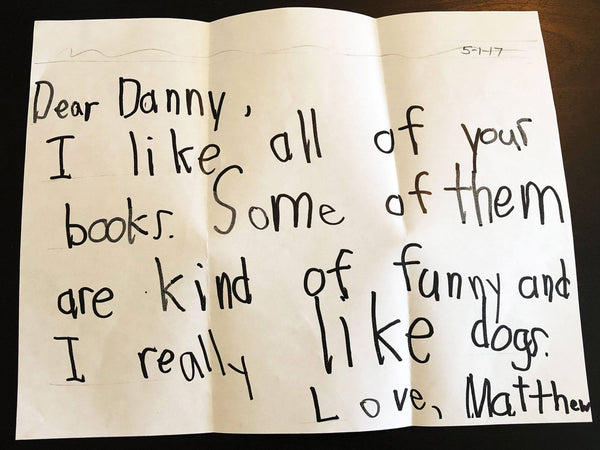 5-1-17
Dear Danny,
I like all of your
books. Some of them
are kind of funny and
I really like dogs.
Love, Matthew